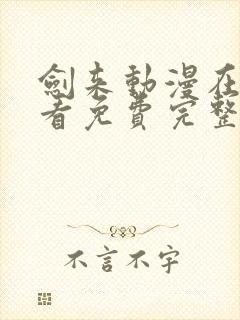 劍来動漫在
看免費完整
不言不字